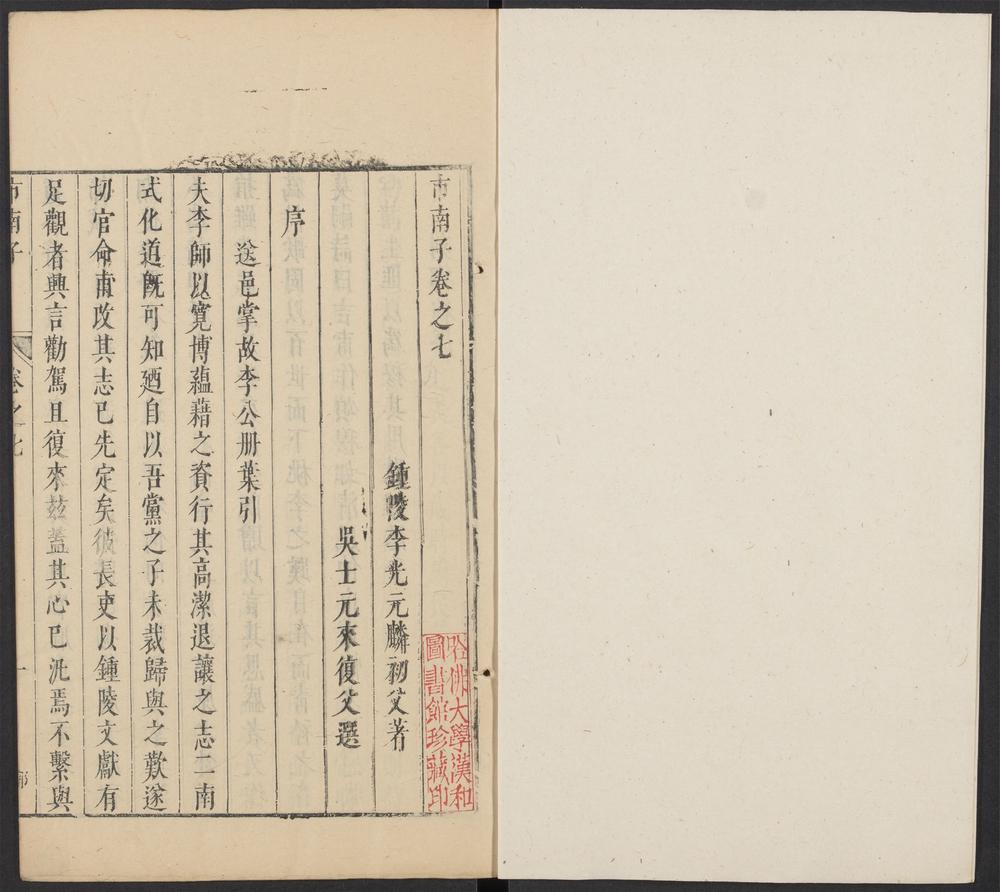 市南子卷之七
鍾陵李光元麟初父著
吳士元來復父選
序
送邑掌故李公册葉引
夫李師以寬博蘊藉之資行其高潔退讓之志二南
式化道既可知廼自以吾黨之子未裁歸與之歎遂
切官命甫改其志已先定矣彼長吏以鍾陵文獻有
足觀者興言勸駕且復來玆蓋其心已汎焉不繫與
市南子
卷之七
一
哈佛大學漢和
圖書館珍藏印